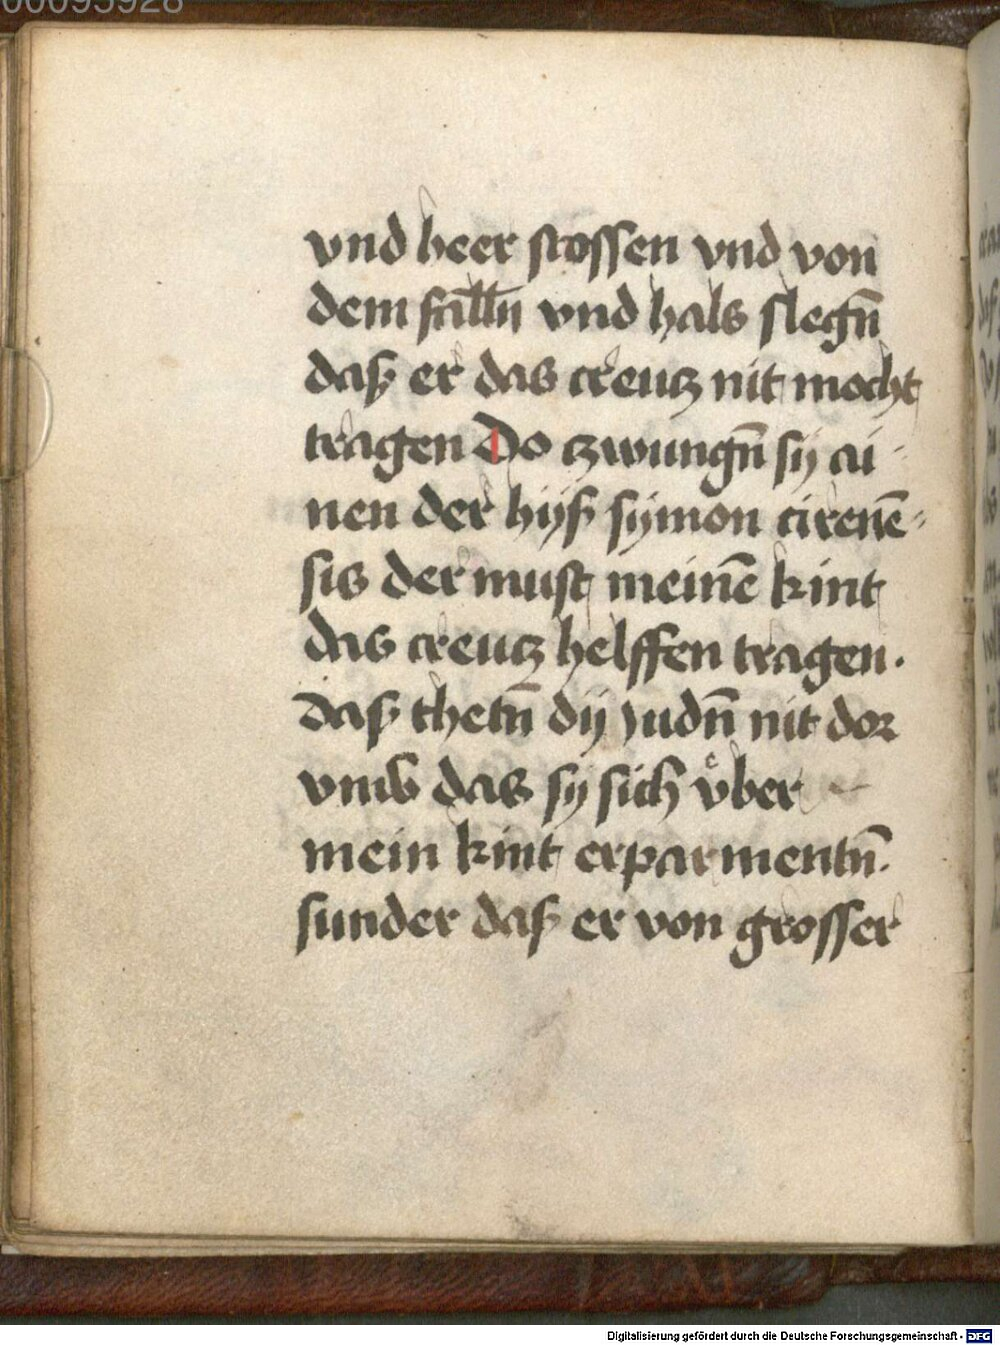 00095928
vnd heer stossen vnd von
dem falln̄ vnd hals slegn̄
daß er das creutz nit mocht
tragen Do czwungn̄ sy ai
nen der hyß symon cirenē-
sis der must meinē kint
das creutz helffen tragen.
daß thetn̄ dy Judn̄ nit dor
vmb das sy sich vͤber
mein kint erparmentn̄.
sunder daß er von grosser
Digitalisierung gefördert durch die Deutsche Forschungsgemeinschaft - DFG